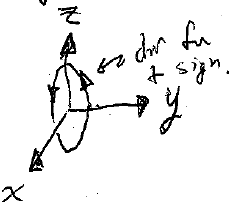 z
dir for
+ sign.
y
x